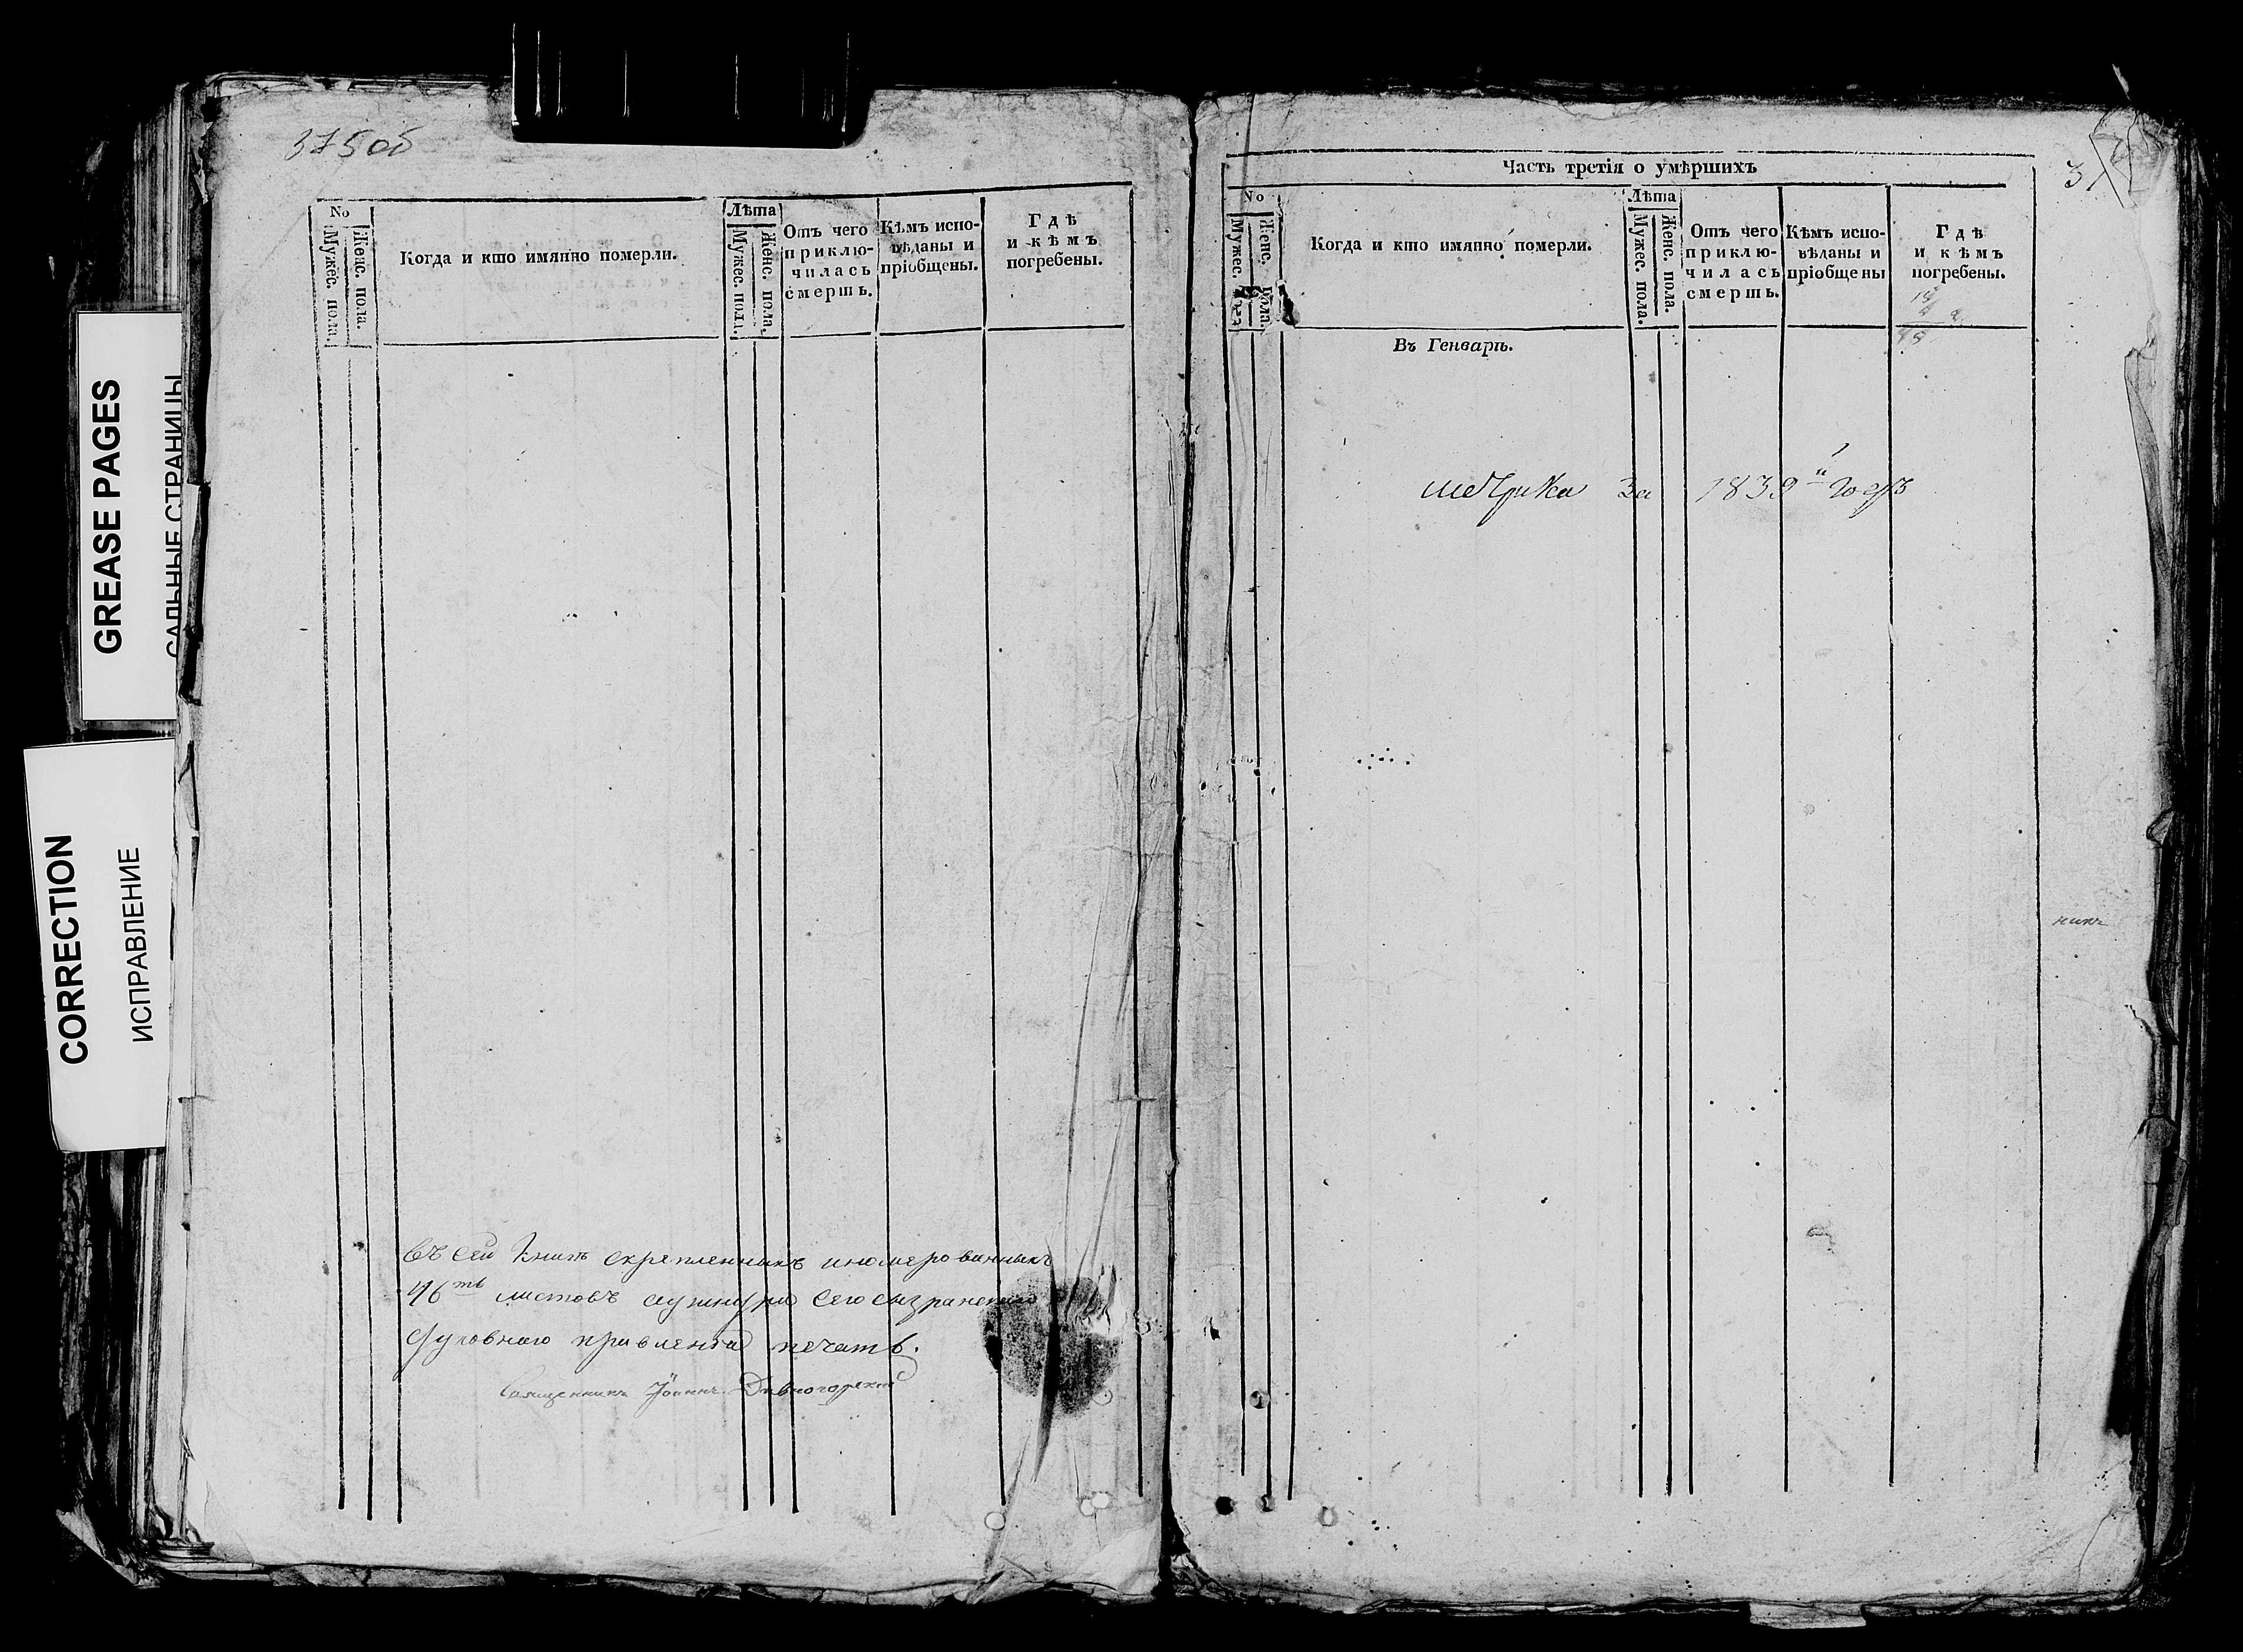 GREASE PAGES
САЛЬНЫЕ СТРАНИЦЫ
CORRECTION
ИСПРАВЛЕНИЕ
375об
No
Мужес. пола.
Женс. пола.
Когда и кто имянно померли.
Лѣта
Мужес. пола.
Женс. пола.
Отъ чего приклю-
чилась
смерть.
Кѣмъ испо-
вѣданы и
пріобщены.
Гдѣ
и кѣмъ
погребены.
Въ сей книгѣ скрепленныхъ иномерованныхъ
46ть листовъ сызранскаго
Духовнаго правленія печать.
Священникъ Іоаннъ Дивногорскій
Часть третія о умѣршихъ
No
Мужес.
Женс. пола.
Когда и кто имянно померли.
Лѣта
Мужес. пола.
Женс. пола.
Отъ чего
приклю-
чилась
смерть.
Кѣмъ испо-
вѣданы и
пріобщены
Гдѣ
и кѣмъ
погребены.
Въ Генварѣ.
метрика за 1839й годъ